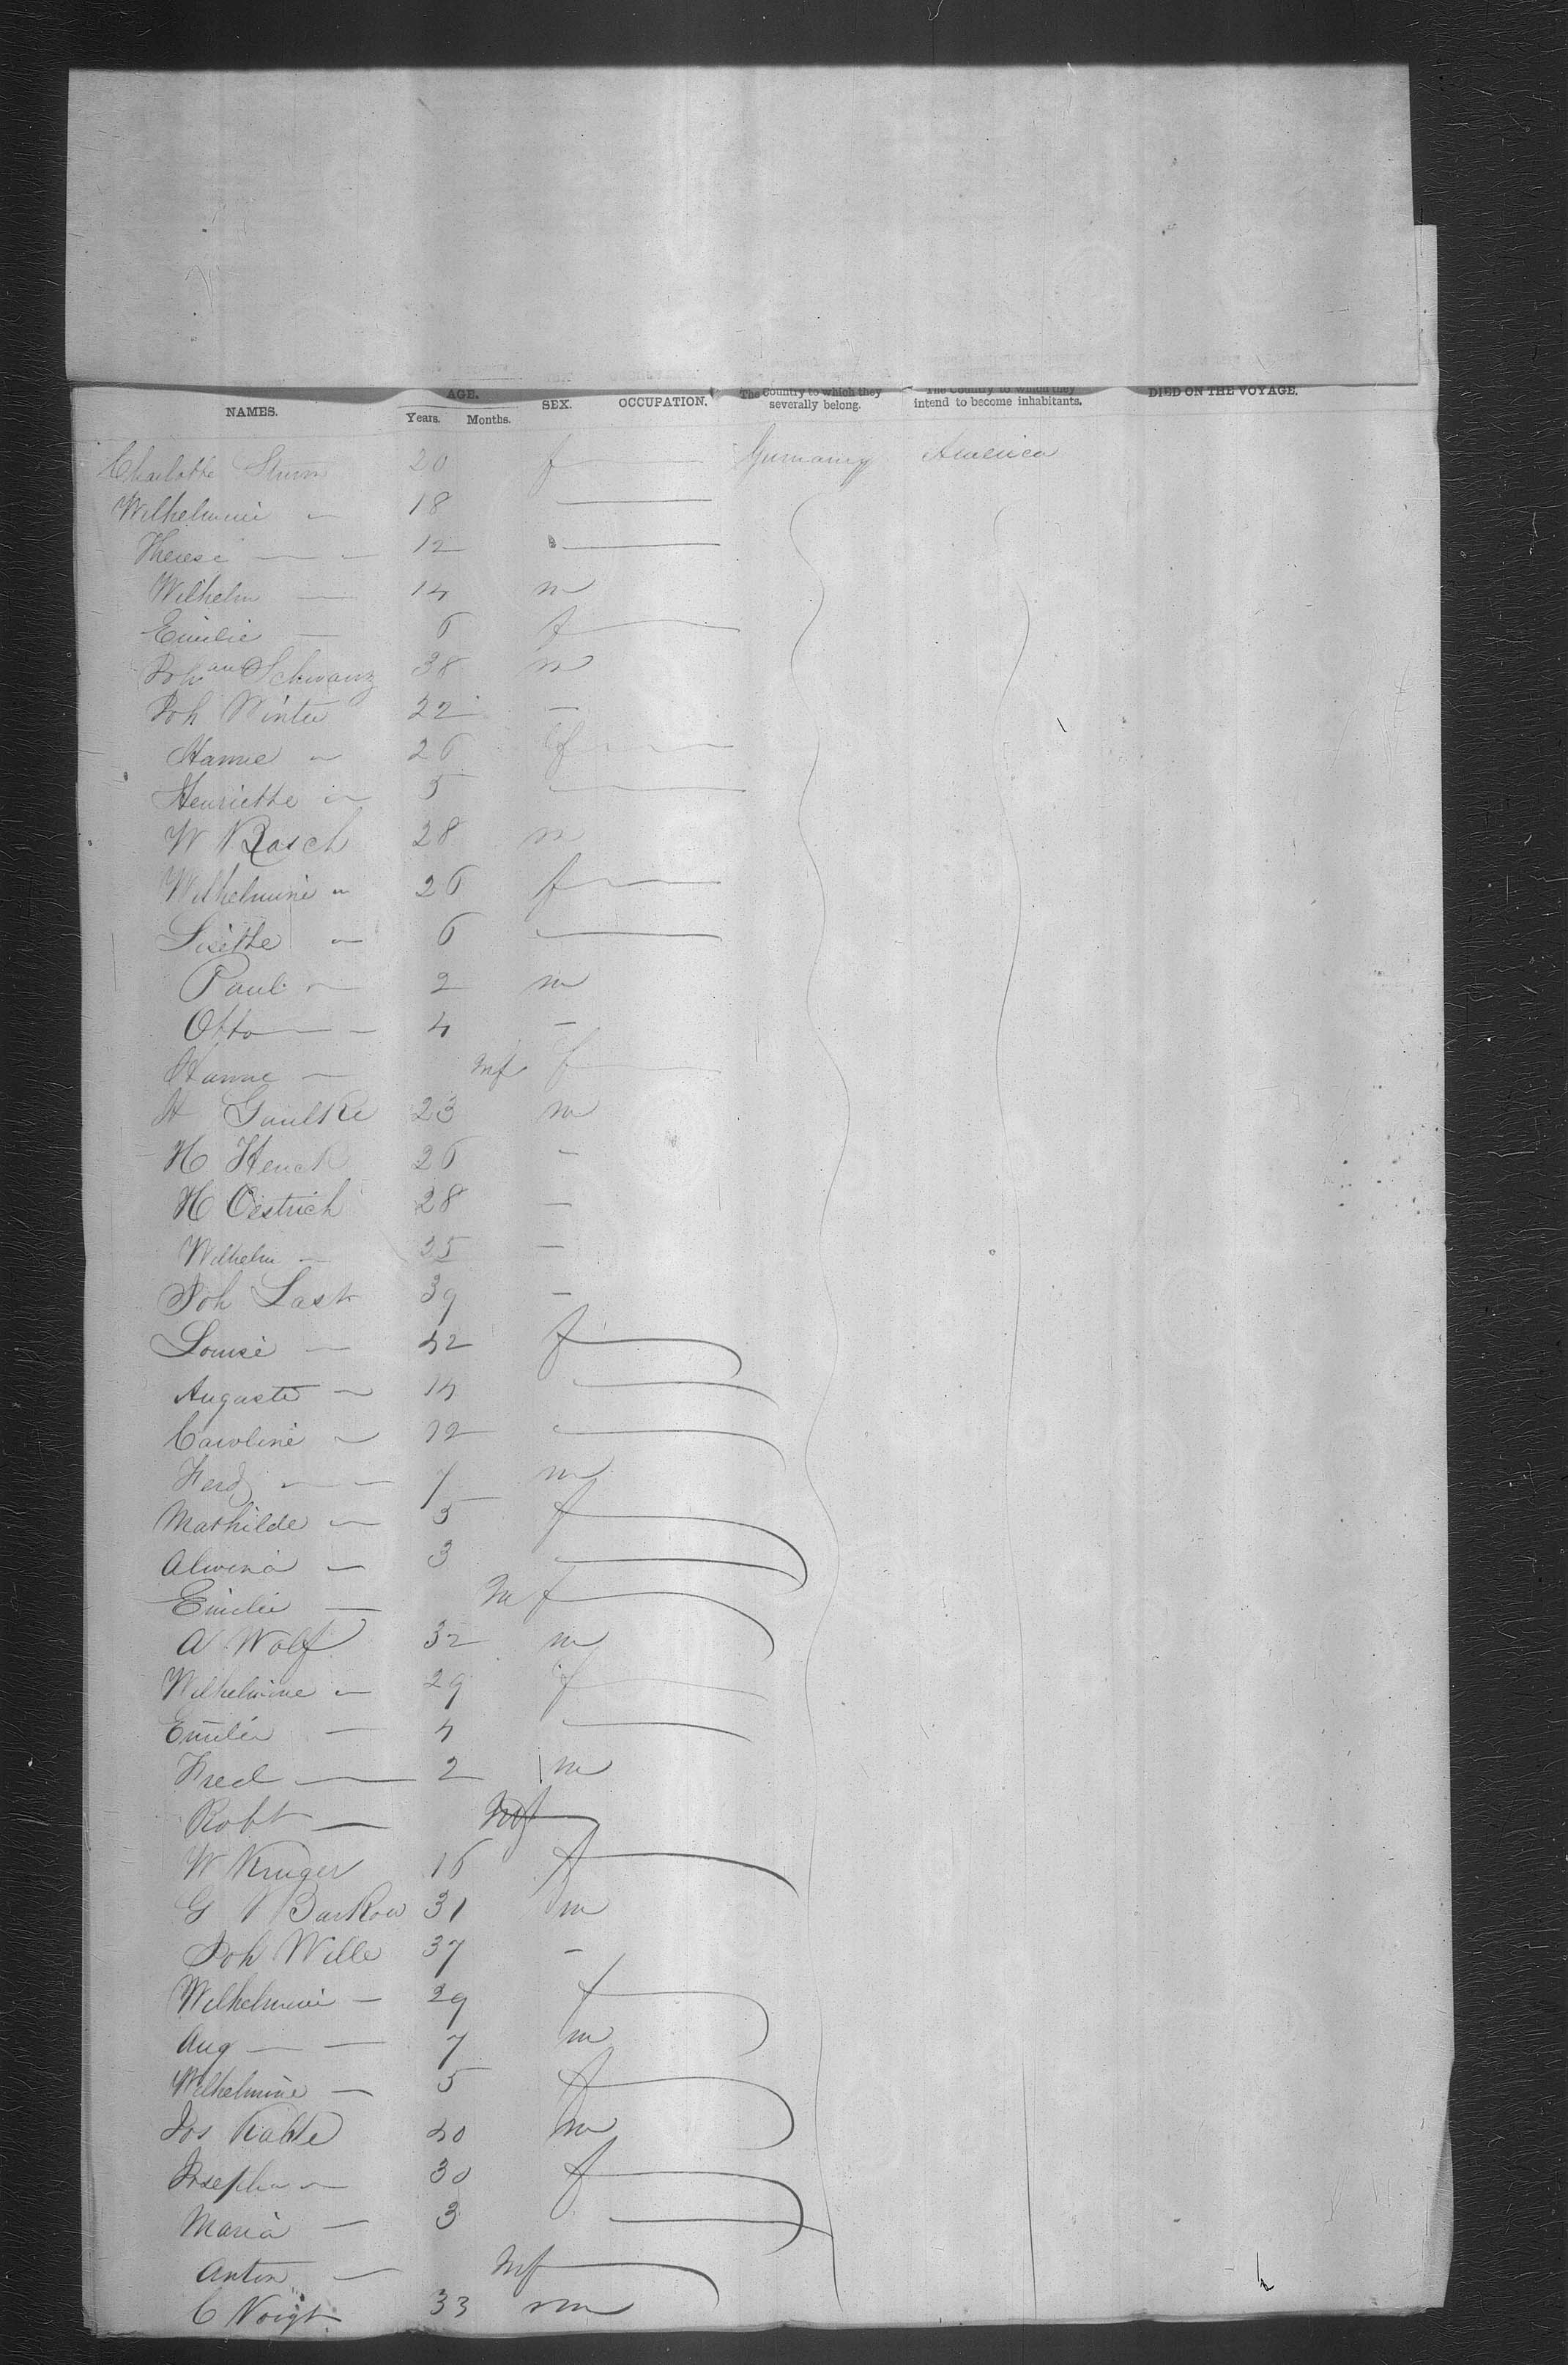 NAMES. AGE. Years. Months. SEX. OCCUPATION. The Country to which they severally belong. The Country to which they intend to become inhabitants. DIED ON THE VOYAGE.
Charlotte Sturm 20 f — Germany America
Wilhelmine " 18 —
Therese — " 12 " —
Wilhelm — 14 m
Emilie — 6 f —
Johan Schwanz 38 m
Joh Winter 22 —
Hanne " 26 f —
Henriette " 5 —
W Rasch 28 m
Wilhelmine " 26 f —
Lisette " 6 —
Paul " 2 m
Otto — 4 —
Hanne — Inf f —
H Gaulke 23 m
H Henck 26 -
H Oestrich 28 —
Wilhelm — 25 —
Joh Last 39 —
Louise — 42 f —
Auguste — 14 —
Caroline — 12 —
Ferd — 7 m
Mathilde — 5 f —
Alwina — 3 —
Emilie — Inf —
A Wolf 32 m
Wilhelmine — 29 f —
Emilie — 4 —
Fred — 2 m
Robt — Inf —
W Kruger 16 f —
G Barkow 31 m
Joh Wille 37 -
Wilhelmine — 29 f —
Aug — — 7 m
Wilhelmine — 5 f —
Jos 40 m
Josepha — 30 f —
Maria — 3 —
Anton — Inf —
C Voigt 33 m